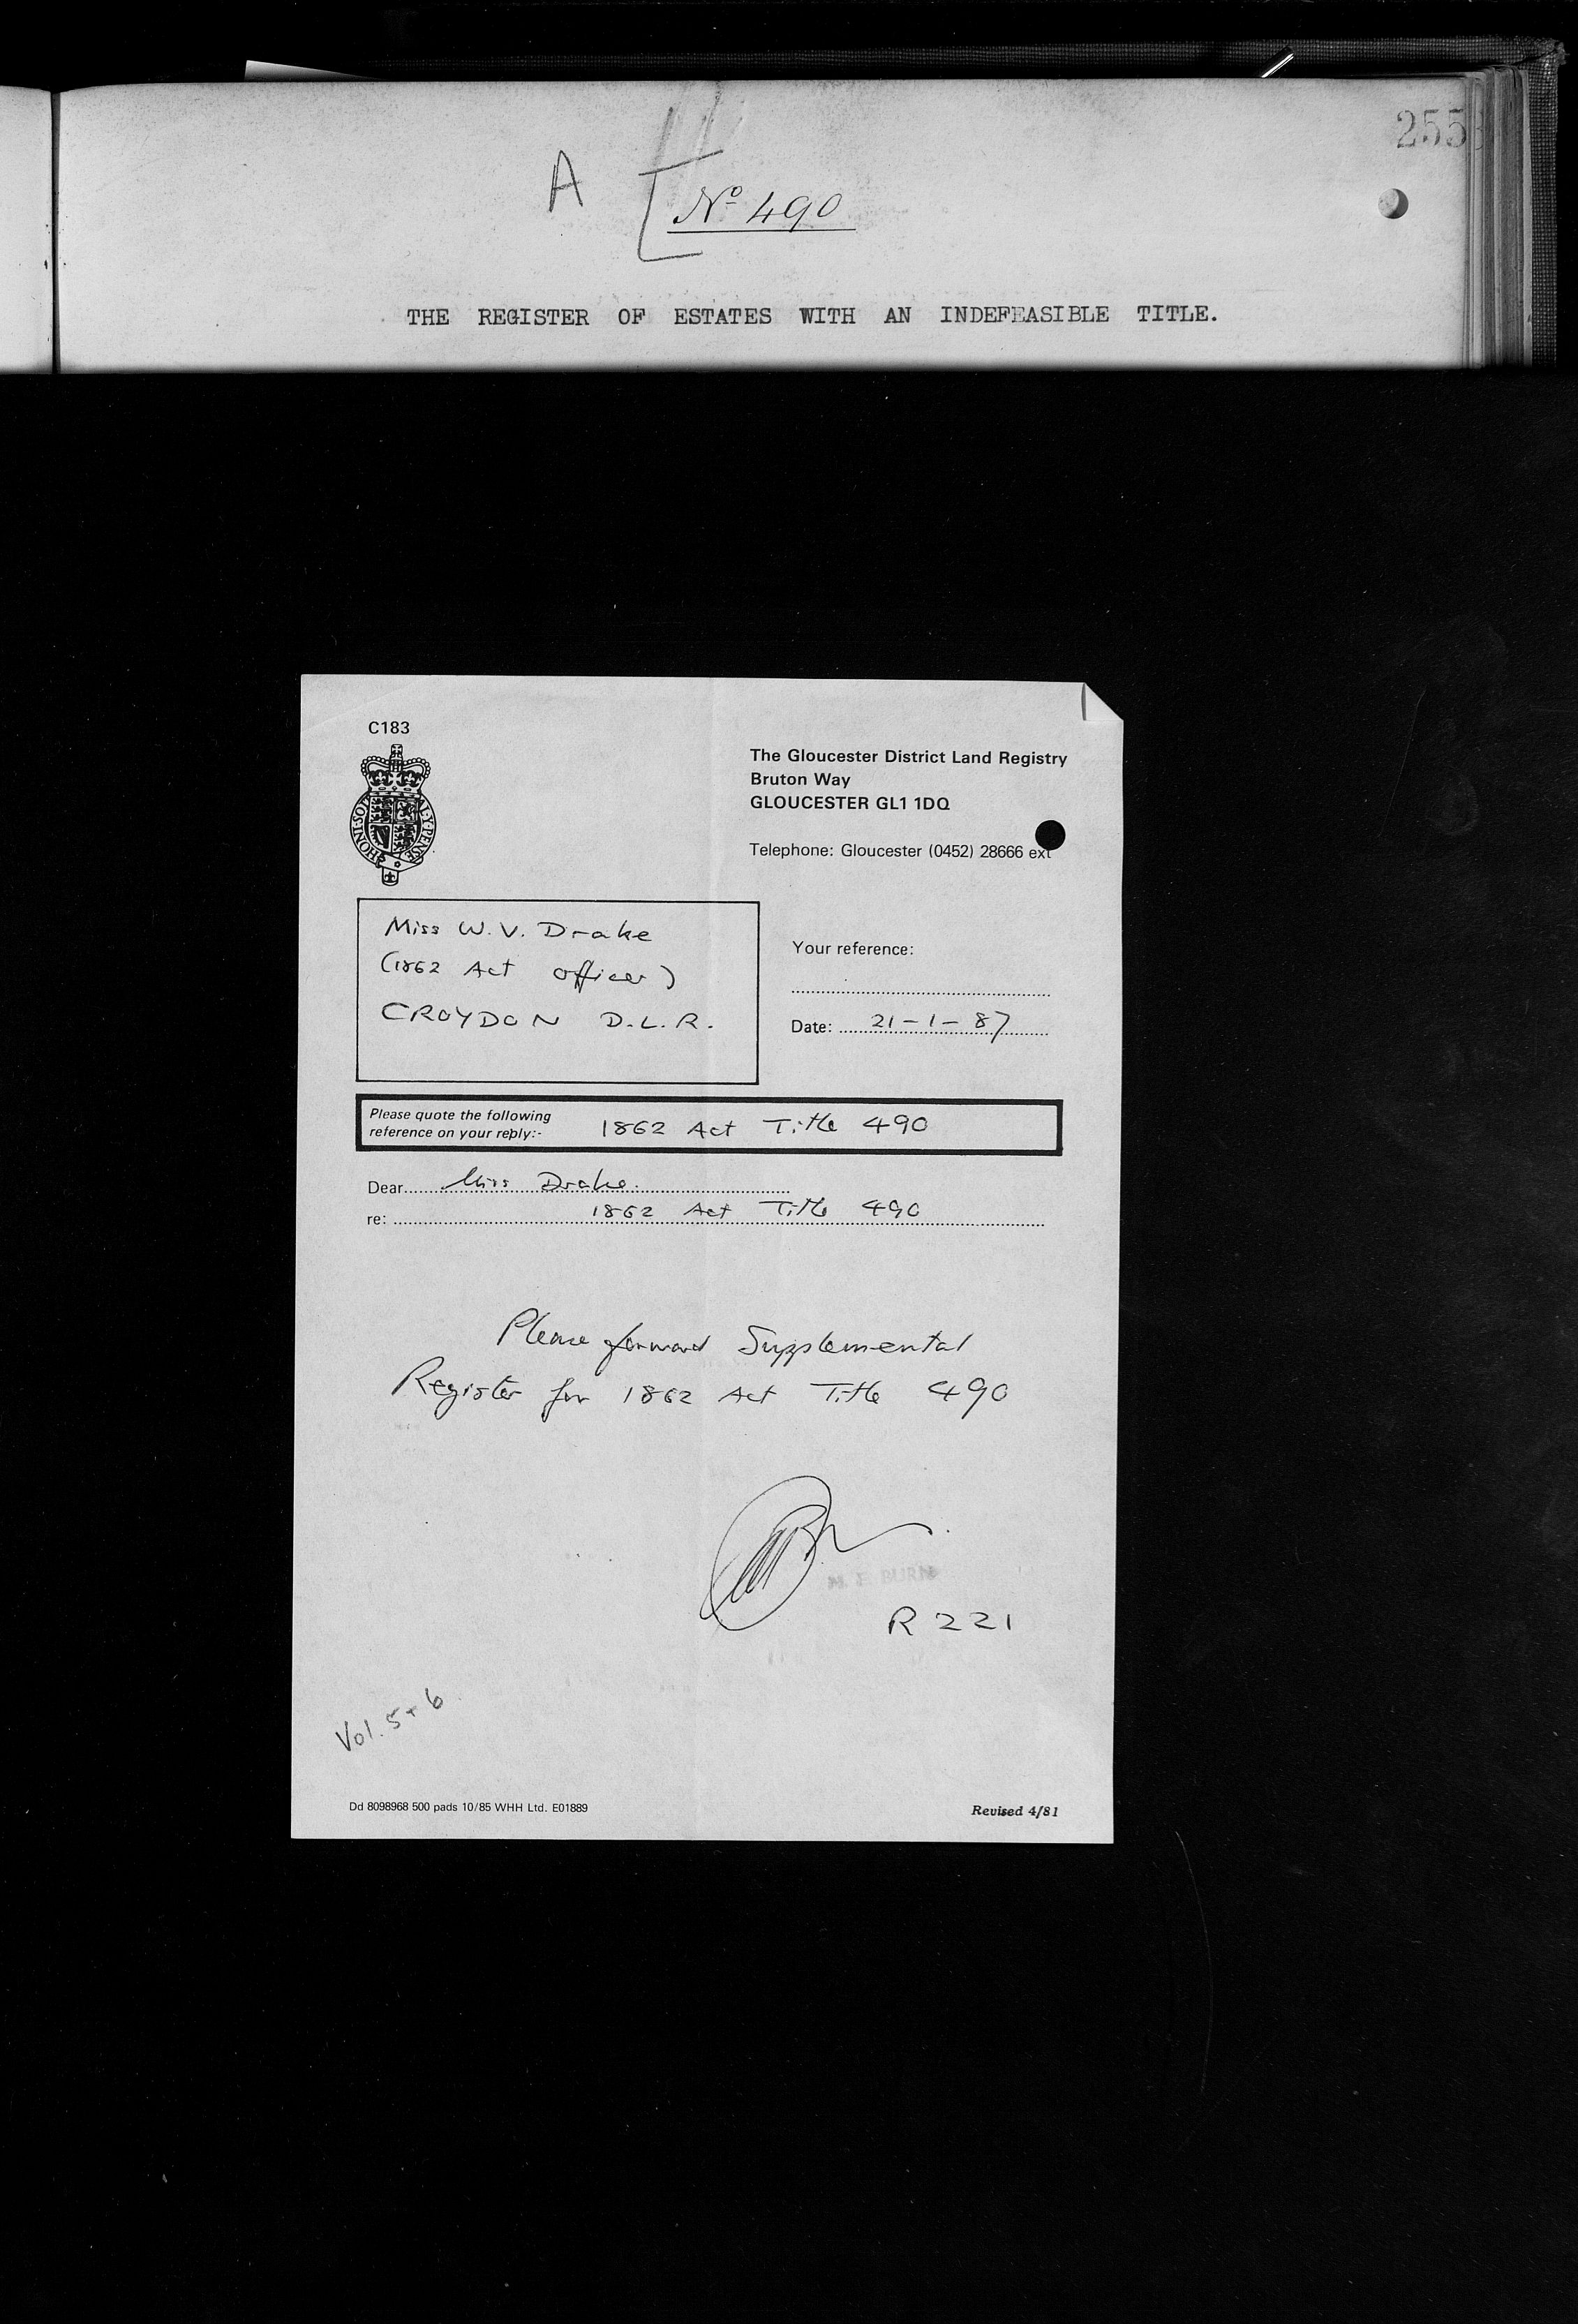 255
A
No 490
THE REGISTER OF ESTATES WITH AN INDEFEASIBLE TITLE.
C183
HONI·SOIT
AL·Y·PENSE
The Gloucester District Land Registry
Bruton Way
GLOUCESTER GL1 1DQ
Telephone: Gloucester (0452) 28666 ext
Miss W.V. Drake
(1862 Act Officer)
CROYDON D.L.R.
Your reference:
Date: 21-1-87
Please quote the following
reference on your reply:- 1862 Act Title 490
Dear Miss Drake.
re: 1862 Act Title 490
Please forward Supplemental
Register for 1862 Act Title 490
M. E. BURN
R 221
Vol. 5+6
Dd 8098968 500 pads 10/85 WHH Ltd. E01889
Revised 4/81